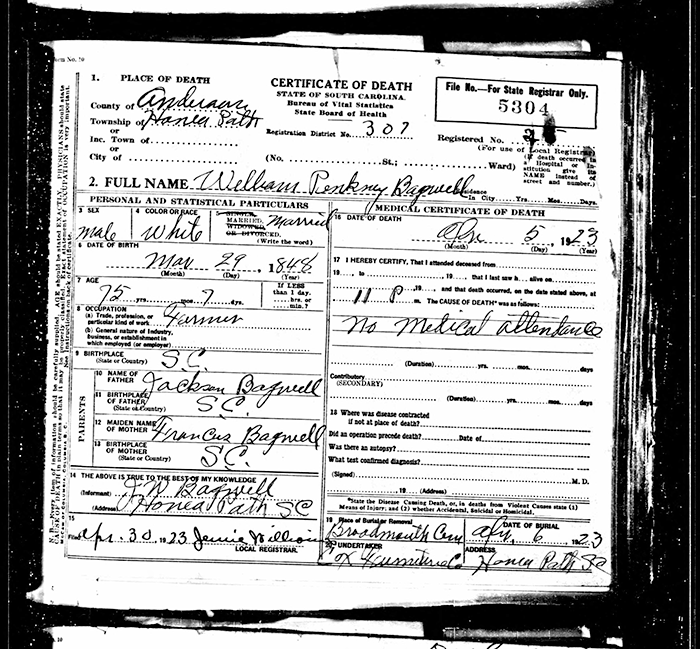 1. PLACE OF DEATH
County of Anderson
Township of Honea Path
or
Inc. Town of
or
City of
CERTIFICATE OF DEATH
STATE OF SOUTH CAROLINA.
Bureau of Vital Statistics
State Board of Health
Registration District No. 307
File No.—For State Registrar Only.
5304
Registered No.
(For use of Local Registrar)
(No. St.; Ward)
(If death occurred in
a Hospital or In-
stitution give its
NAME instead of
street and number.)
2. FULL NAME William Pinkney Bagwell
In City Yrs. Mos. Days.
PERSONAL AND STATISTICAL PARTICULARS
3 SEX
male
4 COLOR OR RACE
White
5 SINGLE,
MARRIED,
WIDOWED
OR DIVORCED.
(Write the word)
Married
6 DATE OF BIRTH
Mar 29, 1848
(Month) (Day) (Year)
7 AGE
75 yrs. mos. 7 ds.
If LESS
than 1 day.
hrs. or
min.?
8 OCCUPATION
(a) Trade, profession, or
particular kind of work Farmer
(b) General nature of Industry,
business, or establishment in
which employed (or employer)
9 BIRTHPLACE
(State or Country) S.C.
PARENTS
10 NAME OF
FATHER Jackson Bagwell
11 BIRTHPLACE
OF FATHER
(State or Country) S.C.
12 MAIDEN NAME
OF MOTHER Francus Bagwell
13 BIRTHPLACE
OF MOTHER
(State or Country) S.C.
14 THE ABOVE IS TRUE TO THE BEST OF MY KNOWLEDGE
(Informant) J.W. Bagwell
(Address) Honea Path SC
15
Filed Apr. 30, 1923 Jennie
LOCAL REGISTRAR.
MEDICAL CERTIFICATE OF DEATH
16 DATE OF DEATH
5, 1923
(Month) (Day) (Year)
17 I HEREBY CERTIFY, That I attended deceased from
19 , to , 19 , that I last saw h alive on
19 , and that death occurred, on the date stated above, at
11 P. m. The CAUSE OF DEATH* was as follows:
No Medical attendance
(Duration) yrs. mos. days
Contributory
(SECONDARY)
(Duration) yrs. mos. days
18 Where was disease contracted
if not at place of death?
Did an operation precede death? Date of
Was there an autopsy?
What test confirmed diagnosis?
(Signed) M. D.
, 19 (Address)
*State the Disease Causing Death, or, in deaths from Violent Causes state (1)
Means of Injury; and (2) whether Accidental, Suicidal or Homicidal.
19 Place of Burial or Removal
Broadmouth Cem
DATE OF BURIAL
Apr, 6 1923
20 UNDERTAKER
Furniture Co
ADDRESS
Honea Path SC